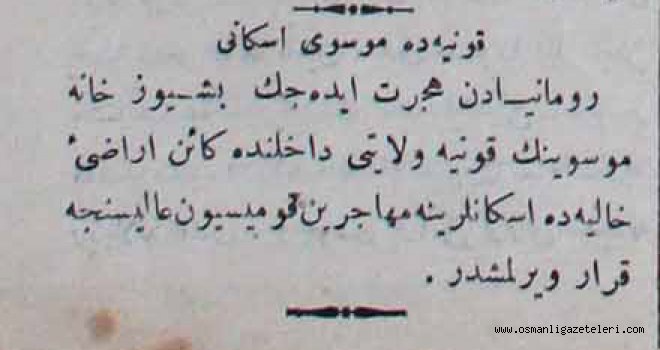 قونیه‌ده موسوی اسكانی
رومانیـادن هجرت ایده‌جك بشـیوز خانه
موسوینك قونیه ولایتی داخلنده كائن اراضیٔ
خالیه‌ده اسكانلرینه مهاجرین قومیسیون عالیسنجه
قرار ویرلمشدر .
www.osmanligazeteleri.com